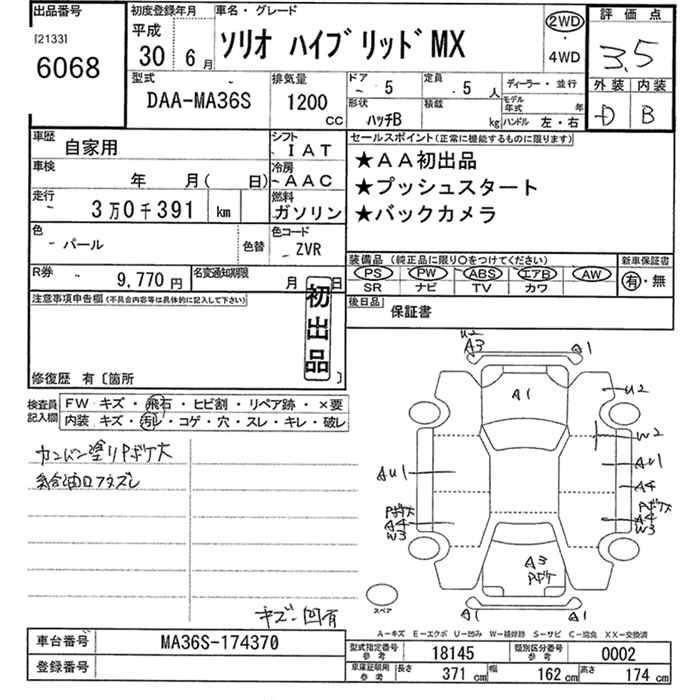 出品番号
[2133]
6068
初度登録年月
平成
30 6月
車名・グレード
ソリオ ハイブリッドMX
2WD
・
4WD
評価点
3.5
外装 内装
D B
型式
DAA-MA36S
排気量
1200 CC
ドア 5
定員 5人
形状 ハッチB
積載 kg
ディーラー・並行
モデル年式 年
ハンドル 左・右
車歴
自家用
シフト
IAT
車検
年 月( 日)
冷房
AAC
走行
3万0千391 km
燃料
ガソリン
色
パール
色替
色コード
ZVR
R券
9,770円
名変通知期限
月 日
セールスポイント(正常に機能するものに限ります)
★AA初出品
★プッシュスタート
★バックカメラ
装備品 (純正品に限り○をつけてください)
PS PW ABS エアB AW
SR ナビ TV カワ
新車保証書
有・無
後日品
保証書
注意事項申告欄(不具合内容等は具体的に記入して下さい)
初出品
修復歴 有〔箇所 〕
検査員記入欄
FW キズ・飛石・ヒビ割・リペア跡・×要
内装 キズ・汚レ・コゲ・穴・スレ・キレ・破レ
カンバン塗りPボケ大
給油口フタズレ
キズ・凹有
U2
A3
A1
A1
U2
W2
AU1
AU1
A4
Pボケ大
A4
W3
Pボケ大
A4
W3
A3
Pボケ
A1
A1
スペア
A-キズ E-エクボ U-凹み W-補修跡 S-サビ C-腐食 XX-交換済
車台番号
MA36S-174370
登録番号
型式指定番号 参考
18145
類別区分番号 参考
0002
車庫証明用 参考
長さ 371 cm 幅 162 cm 高さ 174 cm